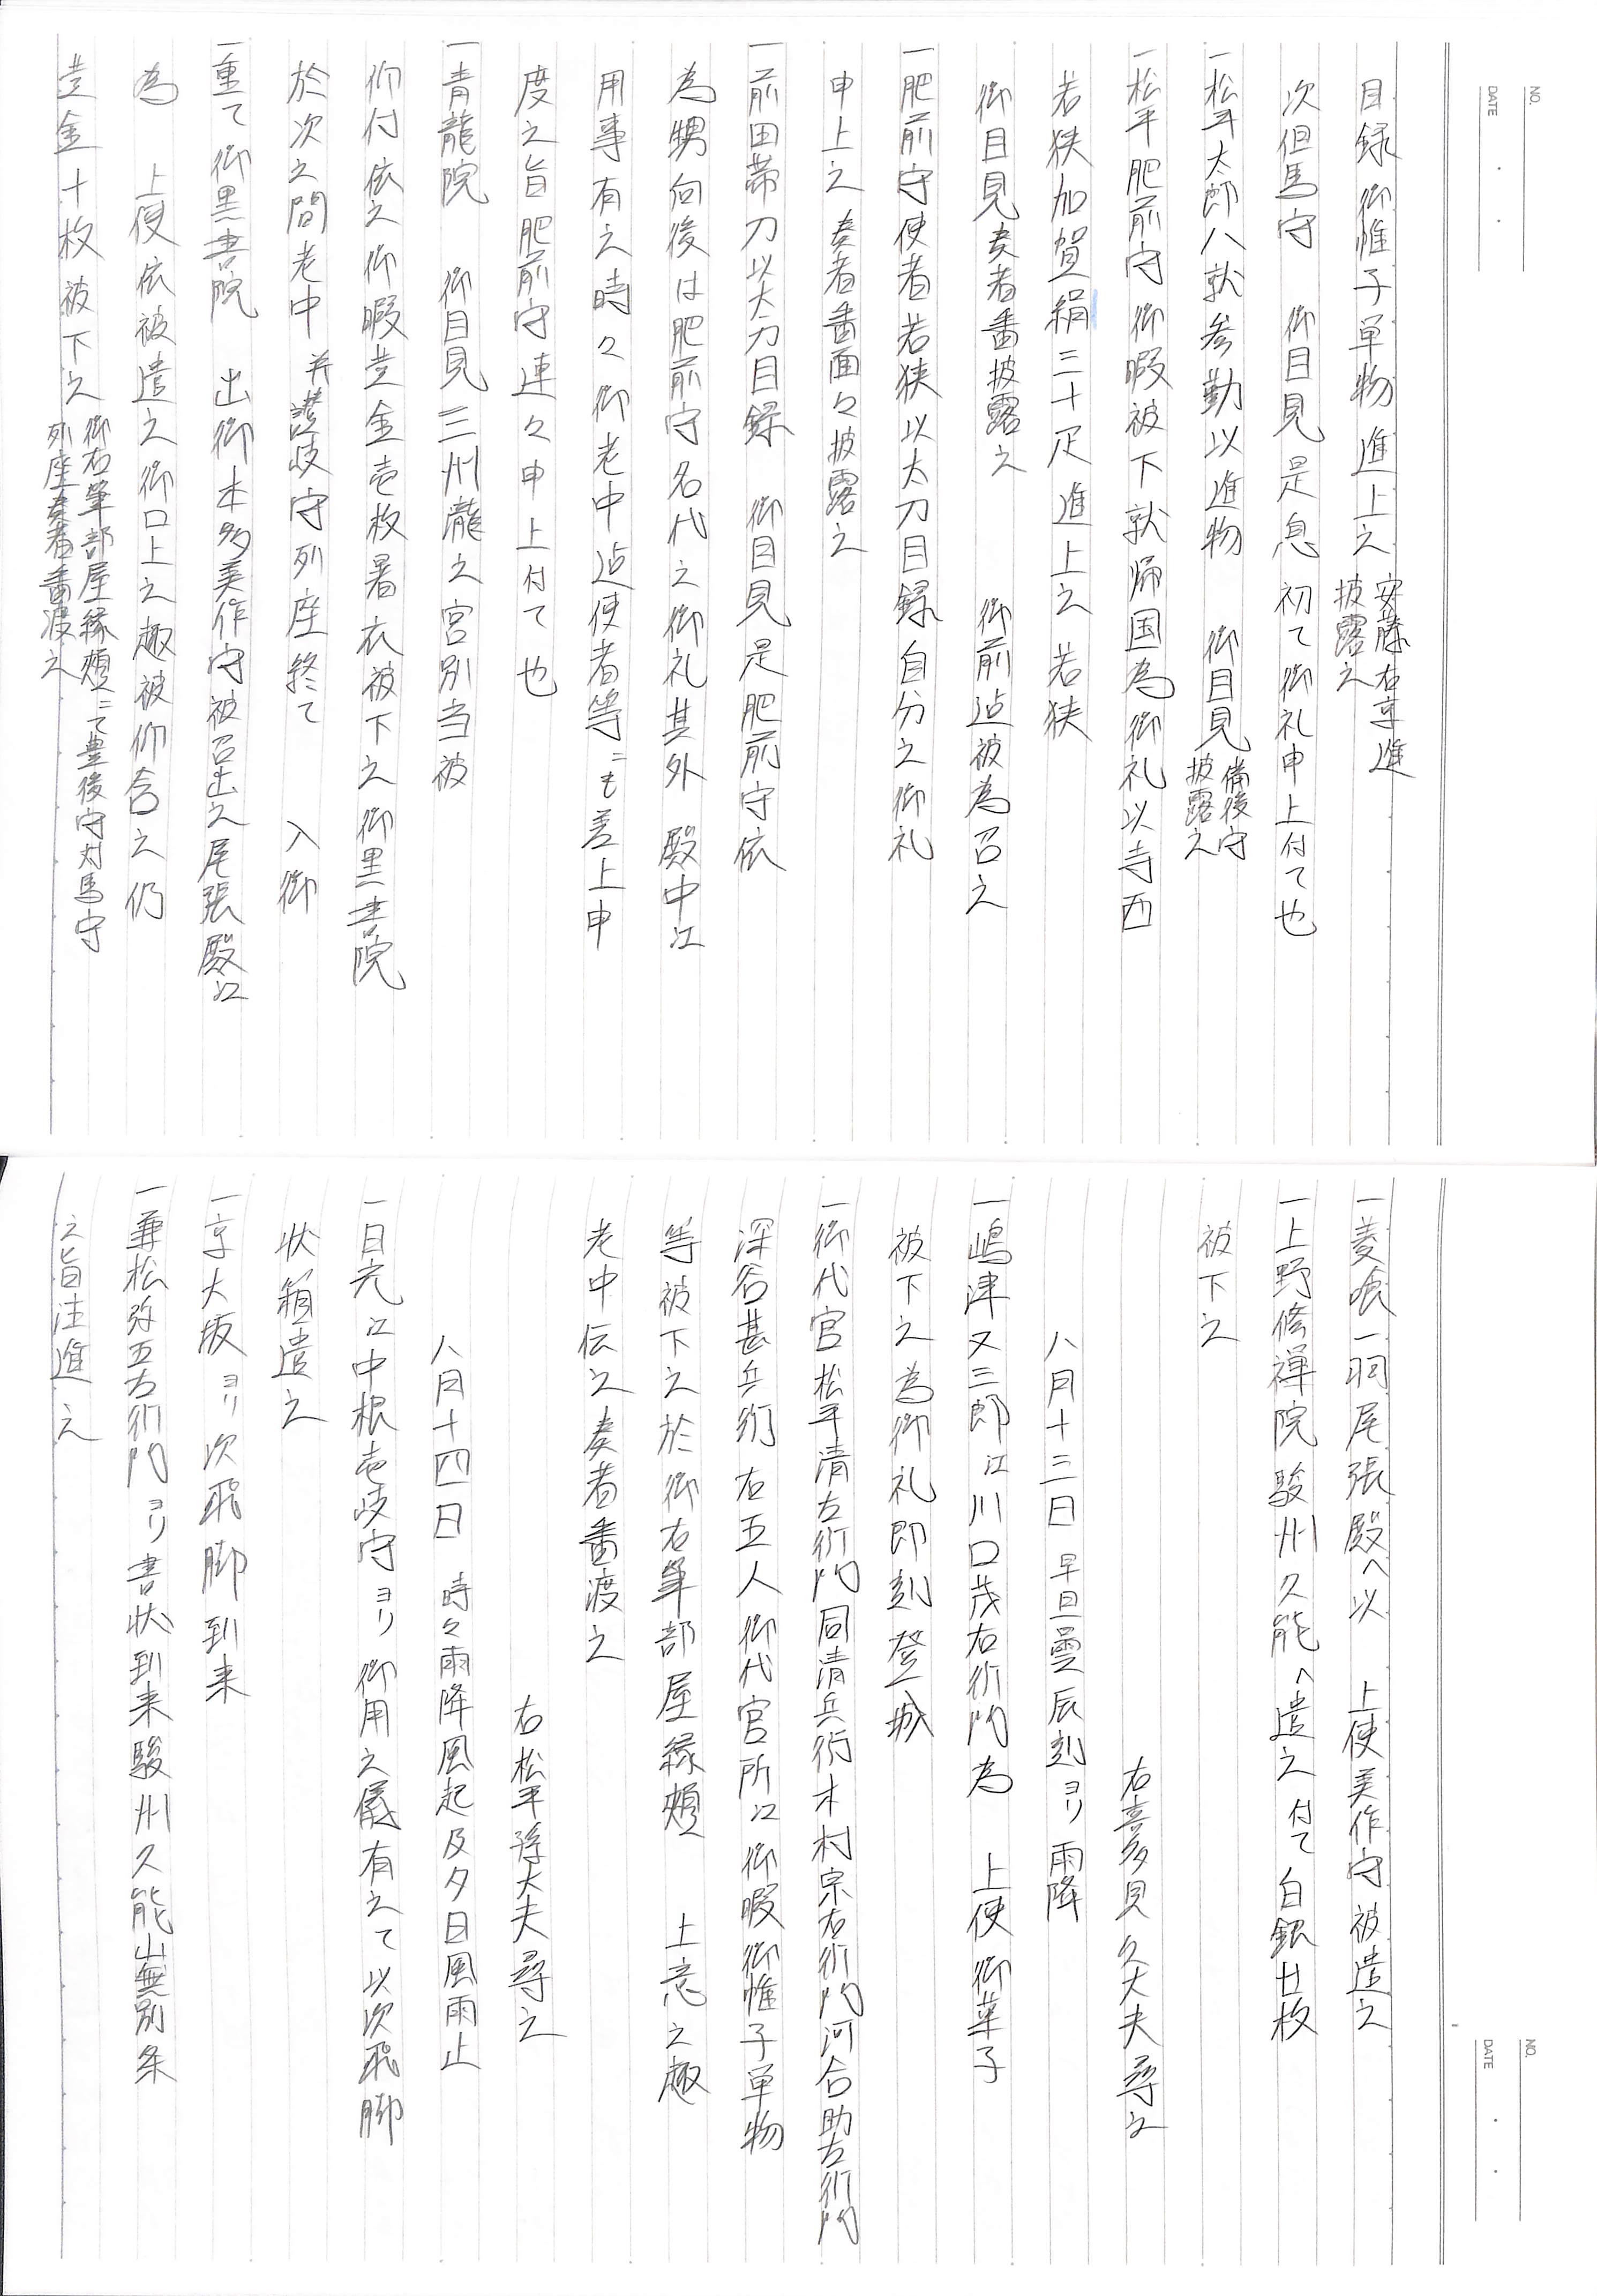 NO.
DATE
目録御帷子単物進上之 安藤右京進披露之
次但馬守 御目見是息初て御礼申上付て也
一松平太郎八就参勤以進物 御目見 備後守披露之
一松平肥前守御暇被下就帰国為御礼以寺西
若狭加賀絹三十疋進上之若狭
御目見奏者番披露之 御前迄被為召之
一肥前守使者若狭以太刀目録自分之御礼
申上之奏者番面々披露之
一前田帯刀以太刀目録 御目見是肥前守依
為甥向後は肥前守名代之御礼其外殿中江
用事有之時々御老中迄使者等ニも差上申
度之旨肥前守連々申上付て也
一青龍院 御目見三州瀧之宮別当被
仰付依之御暇黄金壱枚暑衣被下之御黒書院
於次之間老中并讃岐守列座終て 入御
一重て御黒書院 出御本多美作守被召出之尾張殿江
為 上使依被遣之御口上之趣被仰含之仍
黄金十枚被下之 御右筆部屋縁頬ニて豊後守対馬守列座奏者番渡之
NO.
DATE
一菱喰一羽尾張殿へ以 上使美作守被遣之
一上野修禅院駿州久能へ遣之付て白銀廿枚
被下之
右喜多見久大夫尋之
八月十三日 早旦曇辰刻ヨリ雨降
一嶋津又三郎江川口茂右衛門為 上使御菓子
被下之為御礼即刻登城
一御代官松平清左衛門同清兵衛木村宗右衛門河合助左衛門
深谷甚兵衛右五人御代官所江御暇御帷子単物
等被下之於御右筆部屋縁頬 上意之趣
老中伝之奏者番渡之
右松平孫大夫尋之
八月十四日 時々雨降風起及夕日風雨止
一日光江中根壱岐守ヨリ御用之儀有之て以次飛脚
状箱遣之
一京大坂ヨリ次飛脚到来
一兼松弥五右衛門ヨリ書状到来駿州久能山無別条
之旨注進之